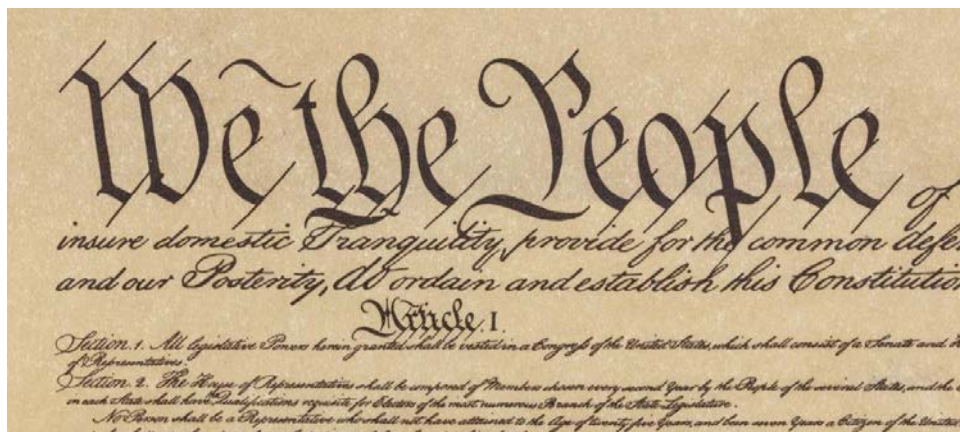 We the People of
insure domestic Tranquility, provide for the common defen
and our Posterity, do ordain and establish this Constitution
Article. I.
Section. 1. All legislative Powers herein granted shall be vested in a Congress of the United States, which shall consist of a Senate and
of Representatives.
Section. 2. The House of Representatives shall be composed of Members chosen every second Year by the People of the several States, and the
in each State shall have Qualifications requisite for Electors of the most numerous Branch of the State Legislature.
No Person shall be a Representative who shall not have attained to the Age of twenty five Years, and been seven Years a Citizen of the United